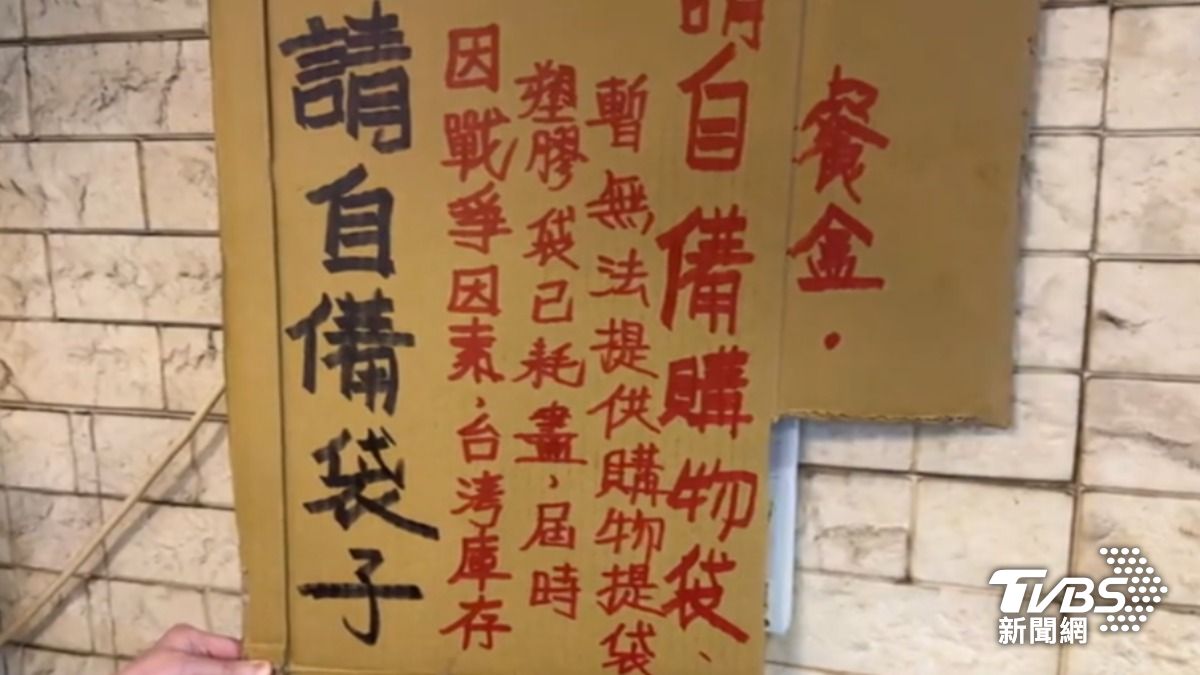 請自備袋子
因戰爭因素,台湾庫存
塑膠袋已耗盡,屆時
暫無法提供購物提袋
請自備購物袋、
餐盒.
TVBS
新聞網